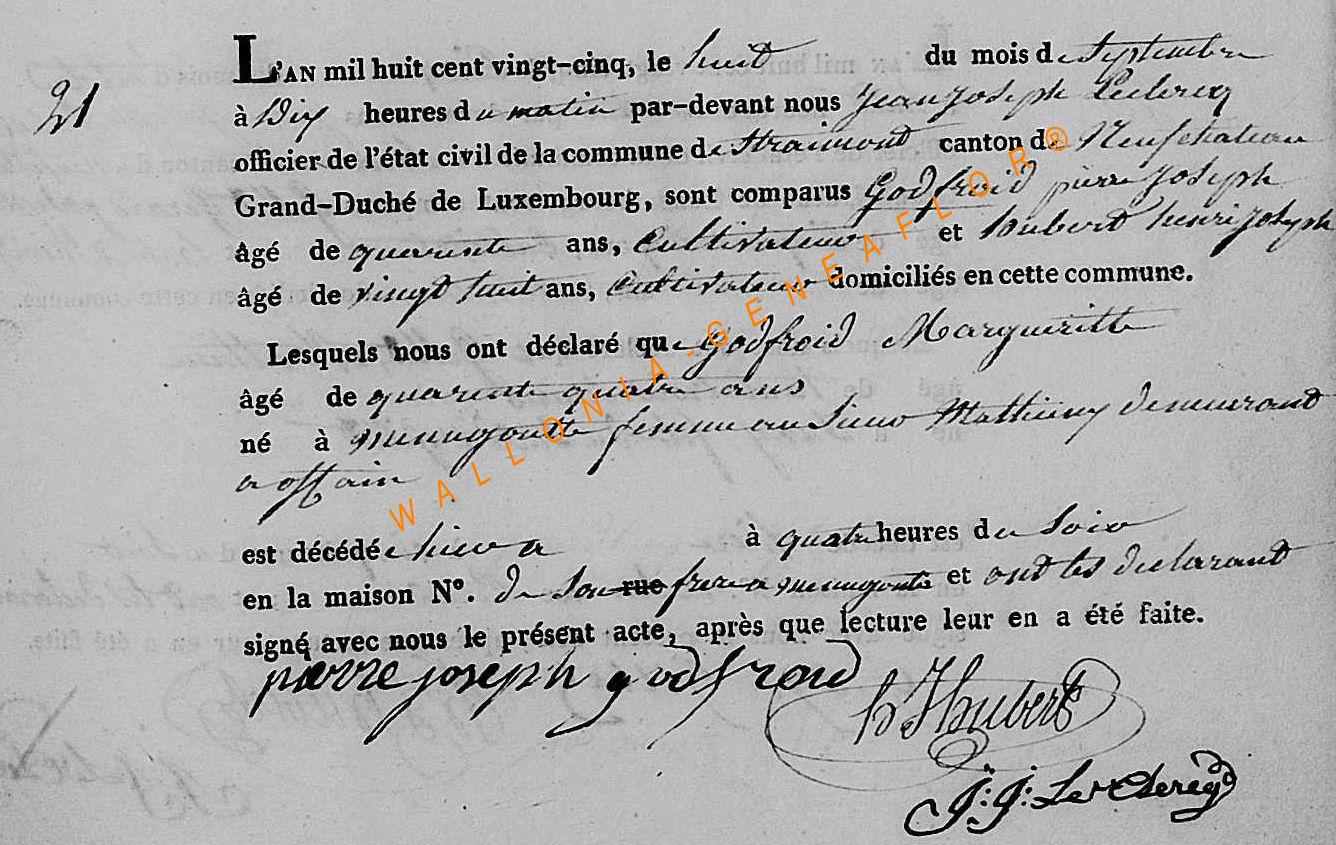 21
L'AN mil huit cent vingt-cinq, le huit du mois de Septembre
à Dix heures du matin par-devant nous Jean Joseph Leclercq
officier de l'état civil de la commune de Straimont canton de Neufchateau
Grand-Duché de Luxembourg, sont comparus Godfroid pierre Joseph
âgé de quarente ans, Cultivateur et hubert henri Joseph
âgé de vingt huit ans, Cultivateur domiciliés en cette commune.
Lesquels nous ont déclaré que Godfroid Margueritte
âgé de quarente quatre ans
né à menugoutte femme au Sieur Mathieu demeurant
a offain
est décédé hier a à quatre heures du Soir
en la maison N°. de Son rue frere a menugoutte et ont les declarant
signé avec nous le présent acte, après que lecture leur en a été faite.
pierre joseph godfroid
h J hubert
J: J: Leclercq
WALLONIA-GENEAFLOR®